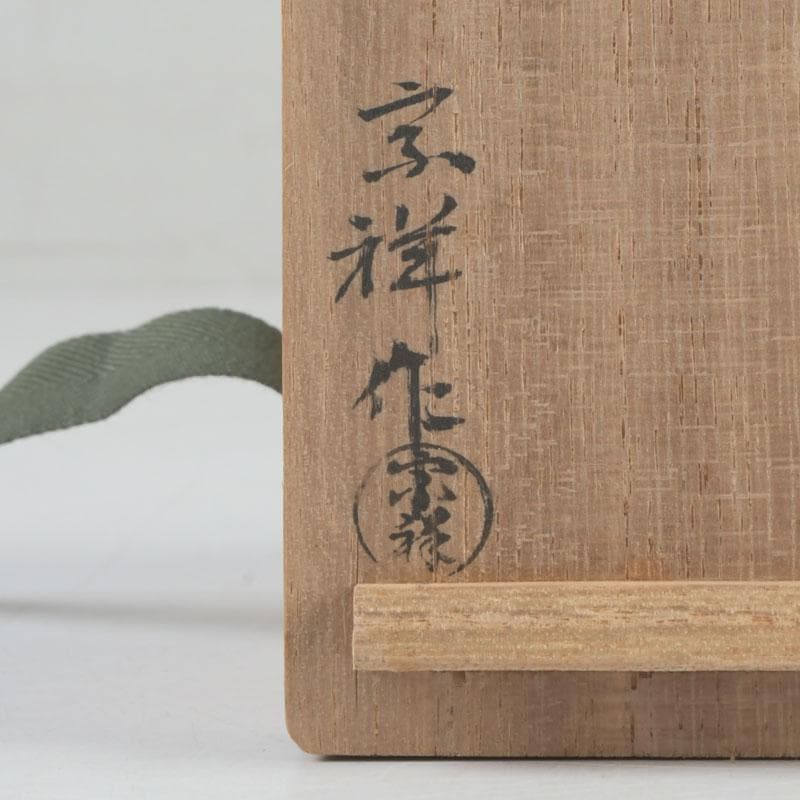 宗祥作
宗祥